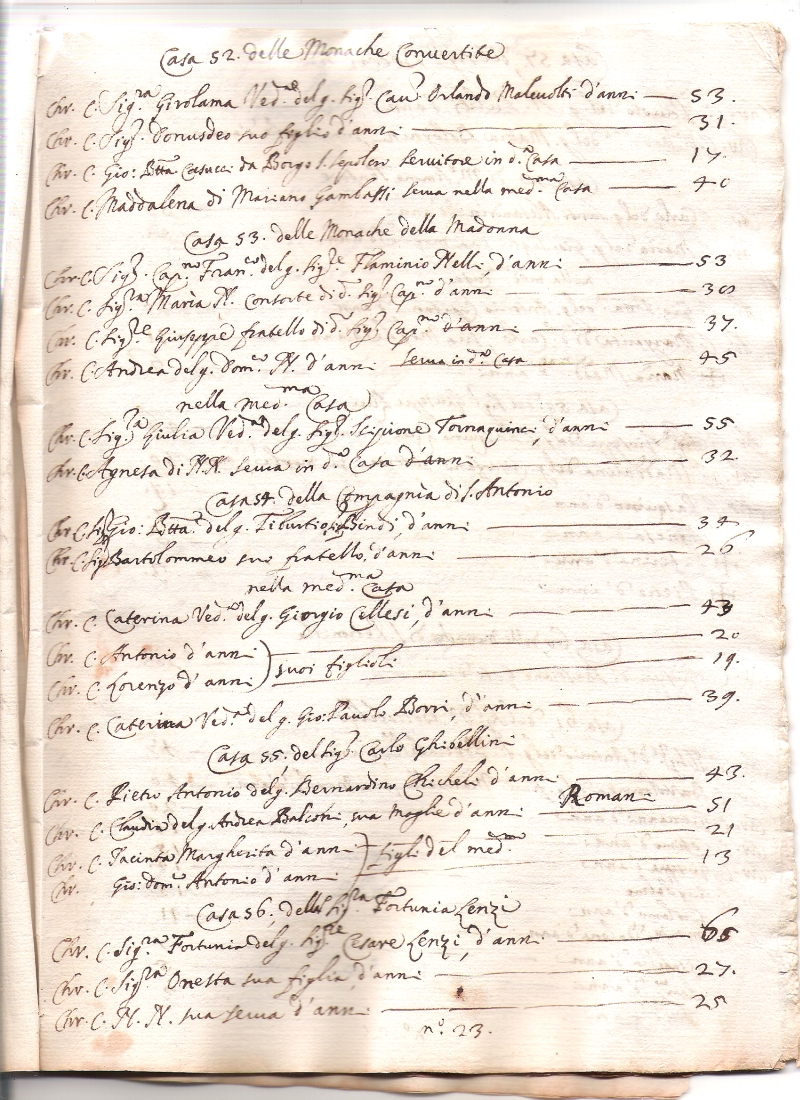 Casa 52. delle Monache Convertite
Chr. C. Sig.ra Girolama Ved.a del g. Sig.r Cau.r Orlando Malevolti d'anni — 53.
Chr. C. Sig.r Bonusdeo suo figlio d'anni — 31.
Chr. C. Gio: Btta. Casucci da Borgo S. Sepolcro servitore in d.a Casa — 17.
Chr. C. Maddalena di Mariano Gambassi serva nella med.ma Casa — 40
Casa 53. delle Monache della Madonna
Chr. C. Sig.r Cap.no Fran.co del g. Sig.re Flaminio Nelli, d'anni — 53
Chr. C. Sig.ra Maria N. Consorte di d.o Sig.r Cap.no d'anni — 30
Chr. C. Sig.re Giuseppe fratello di d.o Sig.r Cap.no d'anni — 37.
Chr. C. Andrea del g. Dom.co N. d'anni serva in d.a Casa — 45
nella med.ma Casa
Chr. C. Sig.ra Giulia Ved.a del g. Sig.r Scipione Tornaquinci, d'anni — 55
Chr. C. Agnesa di N.N. serva in d.a Casa d'anni — 32.
Casa 54. della Compagnia di S. Antonio
Chr. C. Sig.r Gio: Btta. del g. Tiburtio Bindi, d'anni — 34
Chr. C. Sig.r Bartolommeo suo fratello, d'anni — 26
nella med.ma Casa
Chr. C. Caterina Ved.a del g. Giorgio Cellesi, d'anni — 43
Chr. C. Antonio d'anni — 20
Chr. C. Lorenzo d'anni ) suoi figlioli — 19.
Chr. C. Caterina Ved.a del g. Gio: Pauolo Borri, d'anni — 39.
Casa 55, del Sig.r Carlo Ghibellini
Chr. C. Pietro Antonio del g. Bernardino Chicheli d'anni — 43.
Romani
Chr. C. Claudia del g. Andrea sua moglie d'anni — 51
Chr. C. Jacinta Margherita d'anni — 21
Chr. Gio: Dom.co Antonio d'anni ) figli del med.mo — 13
Casa 56, della Sig.ra Fortunia Lenzi
Chr. C. Sig.ra Fortunia del g. Sig.re Cesare Lenzi, d'anni — 65
Chr. C. Sig.ra Onesta sua figlia, d'anni — 27.
Chr. C. N. N. sua serva d'anni — 25
n.o 23.